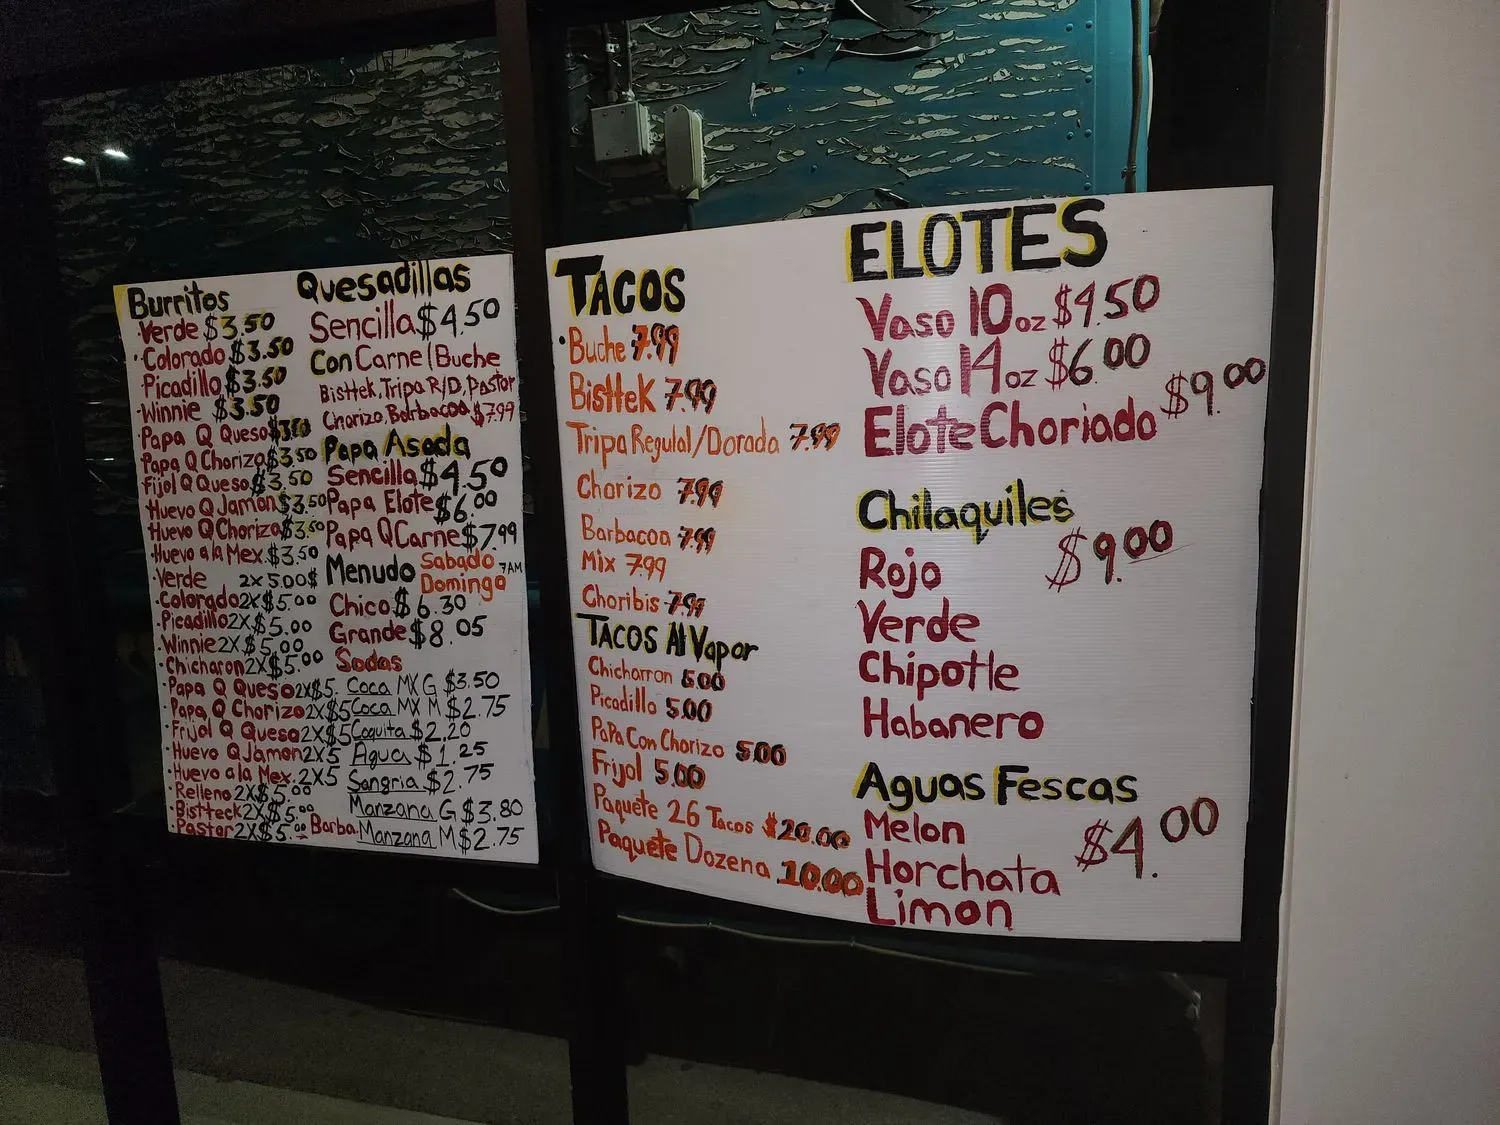 Burritos
Verde $3.50
Colorado $3.50
Picadillo $3.50
Winnie $3.50
Papa Q Queso $3.50
Papa Q Chorizo $3.50
Fijol Q Queso $3.50
Huevo Q Jamon $3.50
Huevo Q Chorizo $3.50
Huevo a la Mex. $3.50
Verde 2X5.00$
Colorado 2X$5.00
Picadillo 2X$5.00
Winnie 2X$5.00
Chicharon 2X$5.00
Papa Q Queso 2X$5.
Papa Q Chorizo 2X$5
Frijol Q Queso 2X$5
Huevo Q Jamon 2X5
Huevo a la Mex. 2X5
Relleno 2X$5.00
Bistteck 2X$5.00
Pastor 2X$5.00 Barba
Quesadillas
Sencilla $4.50
Con Carne/Buche
Bisttek, Tripa R/D, Pastor
Chorizo, Barbacoa $7.99
Papa Asada
Sencilla $4.50
Papa Elote $6.00
Papa Q Carne $7.99
Menudo Sabado 7AM
Domingo
Chico $6.30
Grande $8.05
Sodas
Coca MX G $3.50
Coca MX M $2.75
Coquita $2.20
Agua $1.25
Sangria $2.75
Manzana G $3.80
Manzana M $2.75
TACOS
Buche 7.99
Bisttek 7.99
Tripa Regulal/Dorada 7.99
Chorizo 7.99
Barbacoa 7.99
Mix 7.99
Choribis 7.99
TACOS Al Vapor
Chicharron 5.00
Picadillo 5.00
PaPa Con Chorizo 5.00
Frijol 5.00
Paquete 26 Tacos $20.00
Paquete Dozena 10.00
ELOTES
Vaso 10 oz $4.50
Vaso 14 oz $6.00
Elote Choriado $9.00
Chilaquiles
$9.00
Rojo
Verde
Chipotle
Habanero
Aguas Fescas
Melon $4.00
Horchata
Limon